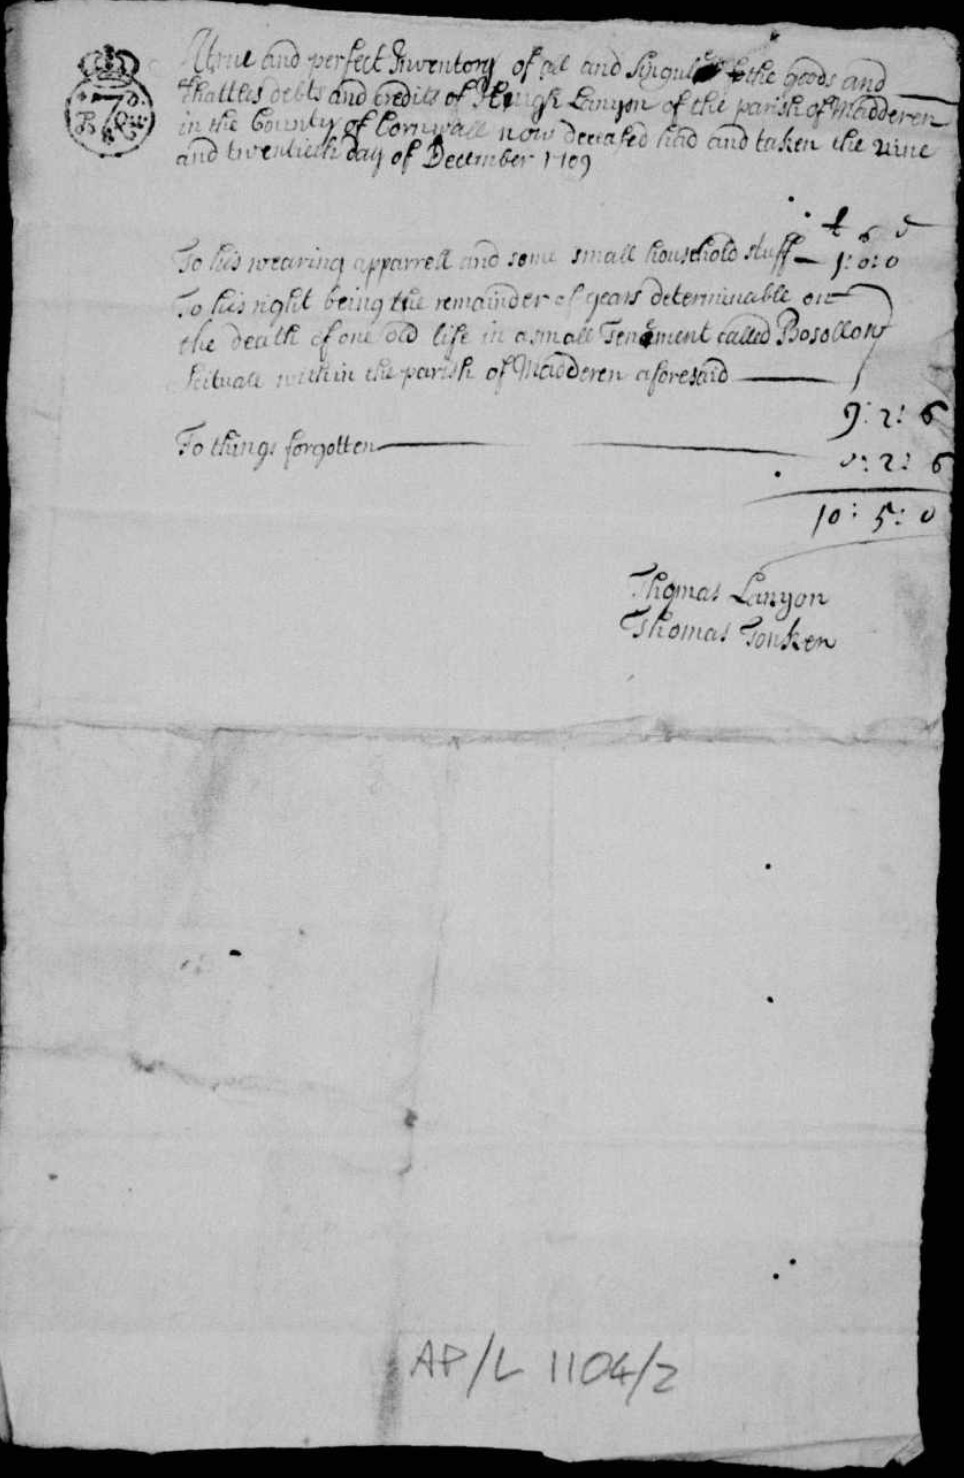 A true and perfect Inventory of all and Singuler the goods and
Chattles debts and credits of Heugh Lanyon of the parish of Madderen
in the County of Cornwall now deceased had and taken the nine
and twentieth day of December 1709
To his wearing apparrell and some small household stuff — 1: 0: 0
To his right being the remainder of years determinable on
the death of one old life in a small Tenement called Bosollow
scituate within the parish of Madderen aforesaid
9: 2: 6
To things forgotten 0: 2: 6
10: 5: 0
Thomas Lanyon
Thomas Tonken
AP/L 1104/2